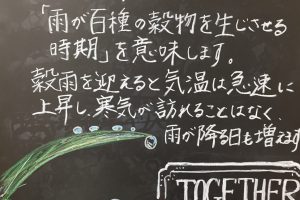 「雨が百種の穀物を生じさせる
時期」を意味します。
穀雨を迎えると気温は急速に
上昇し、寒気が訪れることはなく、
雨が降る日も増えます
TOGETHER